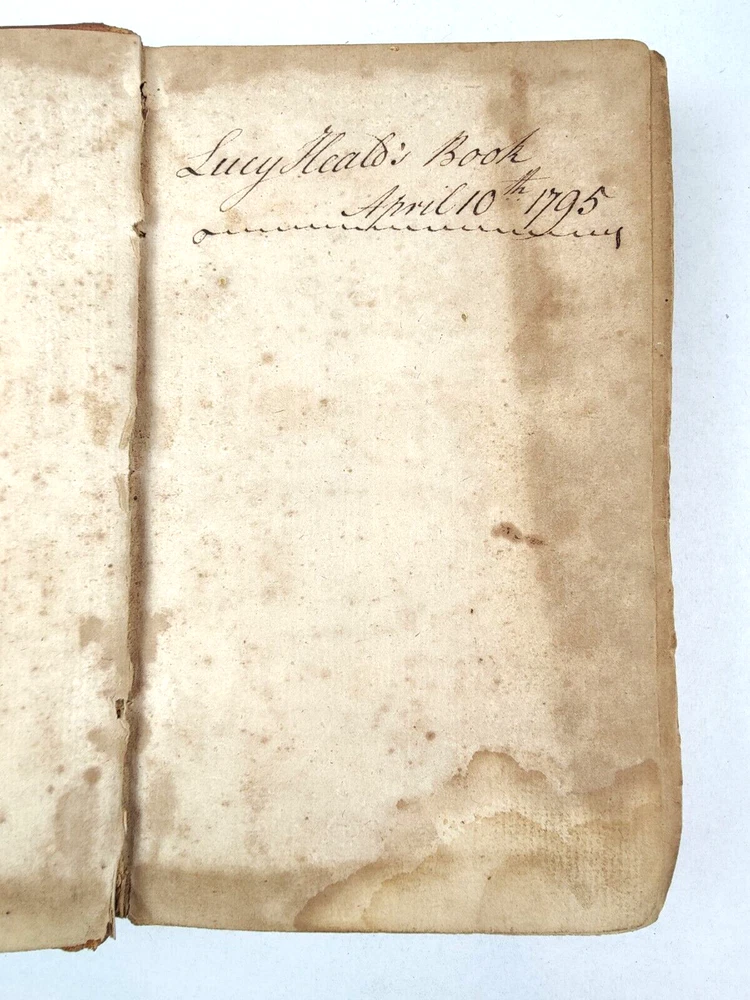 Lucy Heald's Book
April 10th 1795